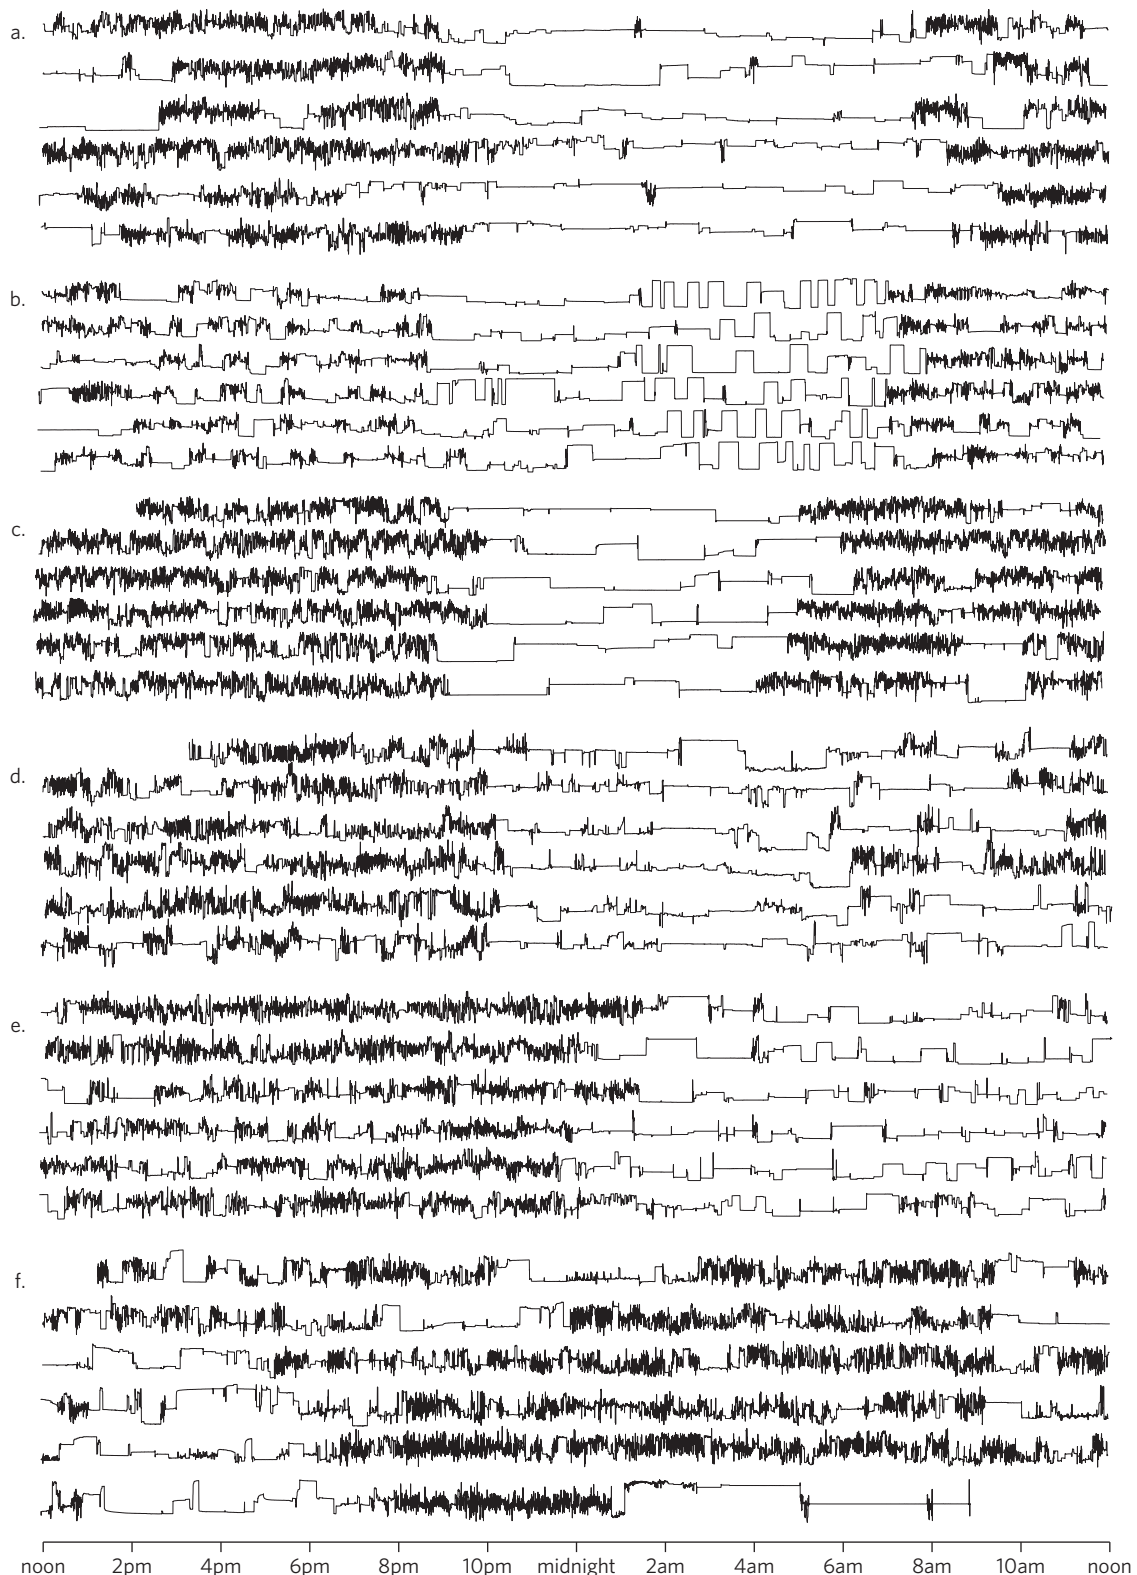 a.
b.
c.
d.
e.
f.
noon 2pm 4pm 6pm 8pm 10pm midnight 2am 4am 6am 8am 10am noon